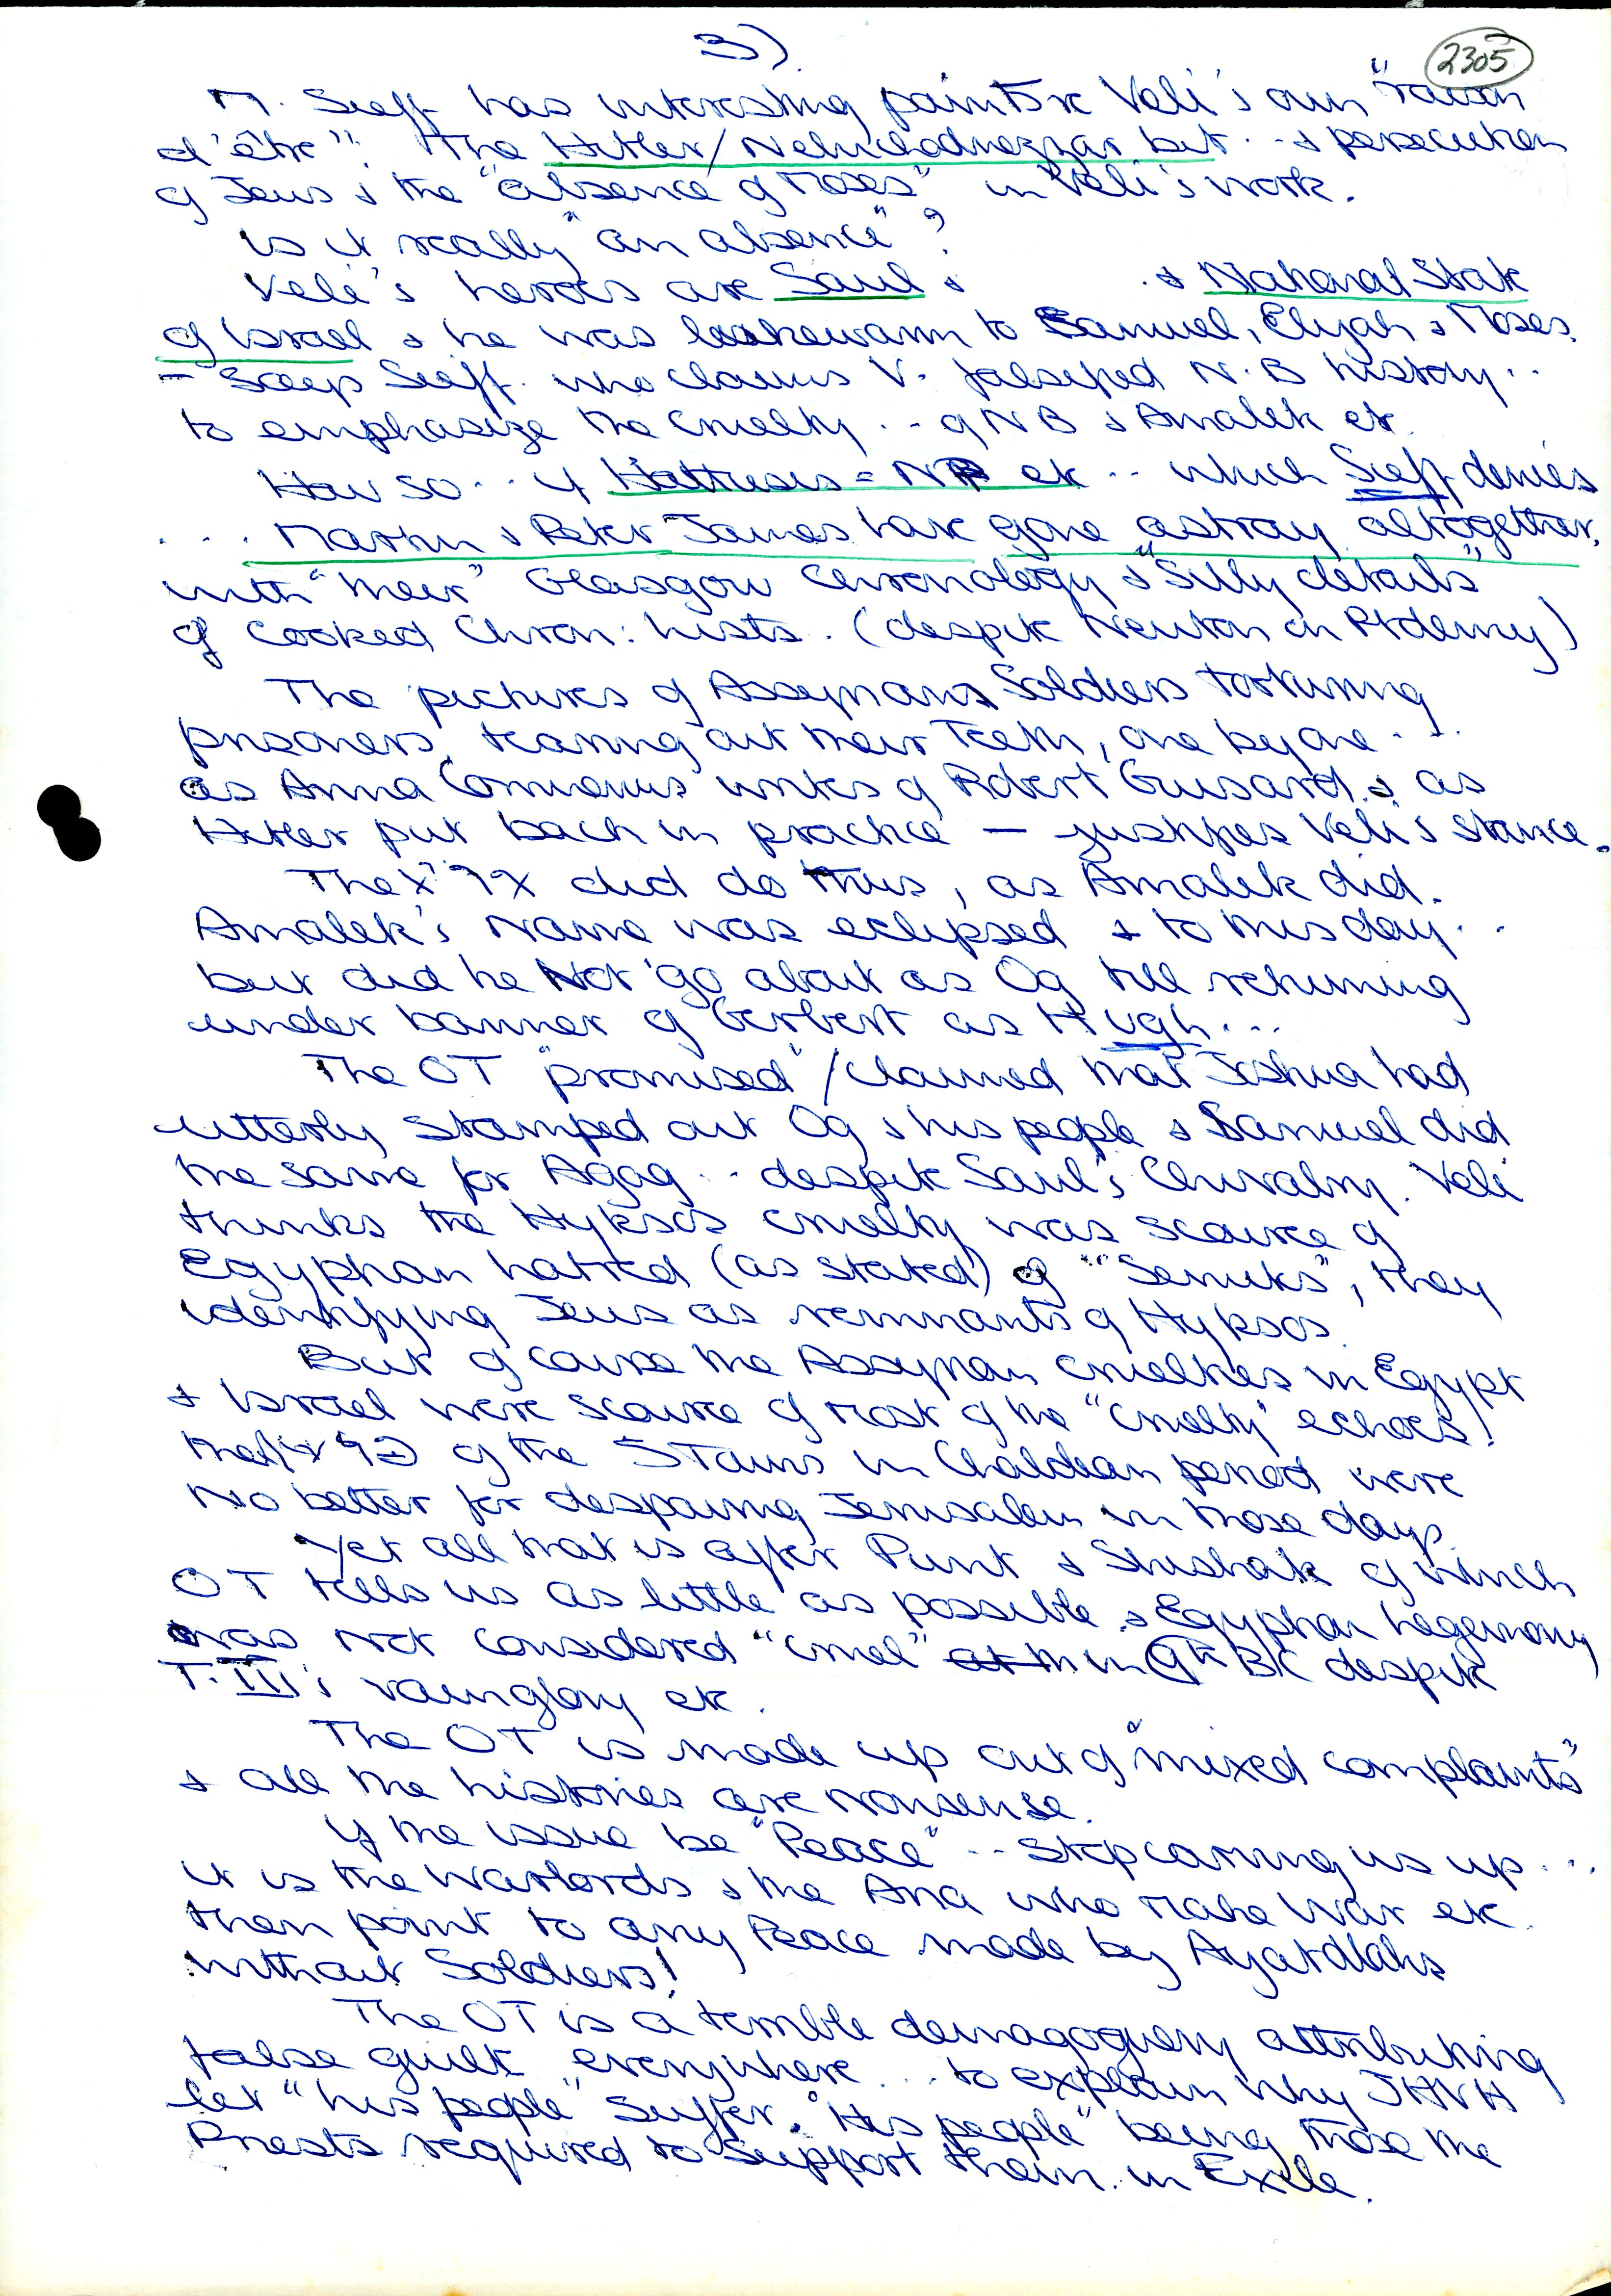 3)
2305
M. Sieff has interesting points re Veli's own "raison
d'être": The Hitler/Nebuchadnezzar bit .. & persecution
of Jews & the "absence of Moses" in Veli's work.
is it really "an absence"?
Veli's heroes are Saul & . & National State
of Israel & he was lukewarm to Samuel, Elijah & Moses.
- says Sieff. who claims V. falsified N.B history ..
to emphasize the cruelty .. of NB & Amalek etc.
How so .. if Hattusis = NB etc .. which Sieff denies
... Martin & Peter James have gone astray altogether,
with "their" Glasgow Chronology & "Silly details"
of Cooked Chron: lists. (despite Newton on Ptolemy)
The pictures of Assyrians Soldiers torturing
prisoners, tearing out their Teeth, one by one ...
as Anna Comnenus writes of Robert Guisard & as
Hitler put back in practice — justifies Veli's stance.
The did do this, as Amalek did.
Amalek's Name was eclipsed & to this day ..
but did he Not go about as Og till returning
under banner of Gerbert as Hugh ...
The OT "promised"/claimed that Joshua had
utterly stamped out Og & his people & Samuel did
the same for Agag .. despite Saul's Chivalry. Veli
thinks the Hyksos cruelty was source of
Egyptian hatred (as stated) of "Semites", they
identifying Jews as remnants of Hyksos.
But of course the Assyrian cruelties in Egypt
& Israel were source of most of the "cruelty" echoes!
the of the 5 Towns in Chaldean period were
No better for despairing Jerusalem in those days.
Yet all that is after Punt & Shishak of which
OT tells us as little as possible & Egyptian hegemony
was Not considered "cruel" in 9th BC despite
T. III's vainglory etc.
The OT is made up out of "mixed complaints"
& all the histories are nonsense.
If the issue be "Peace" .. Stop carving us up ...
it is the Warlords & the Aria who make War etc.
then point to any Peace made by Ayatollahs
without Soldiers!
The OT is a terrible demagoguery attributing
false guilt everywhere ... to explain why JHVH
let "his people" suffer. "His people" being those the
Priests required to support them in Exile.